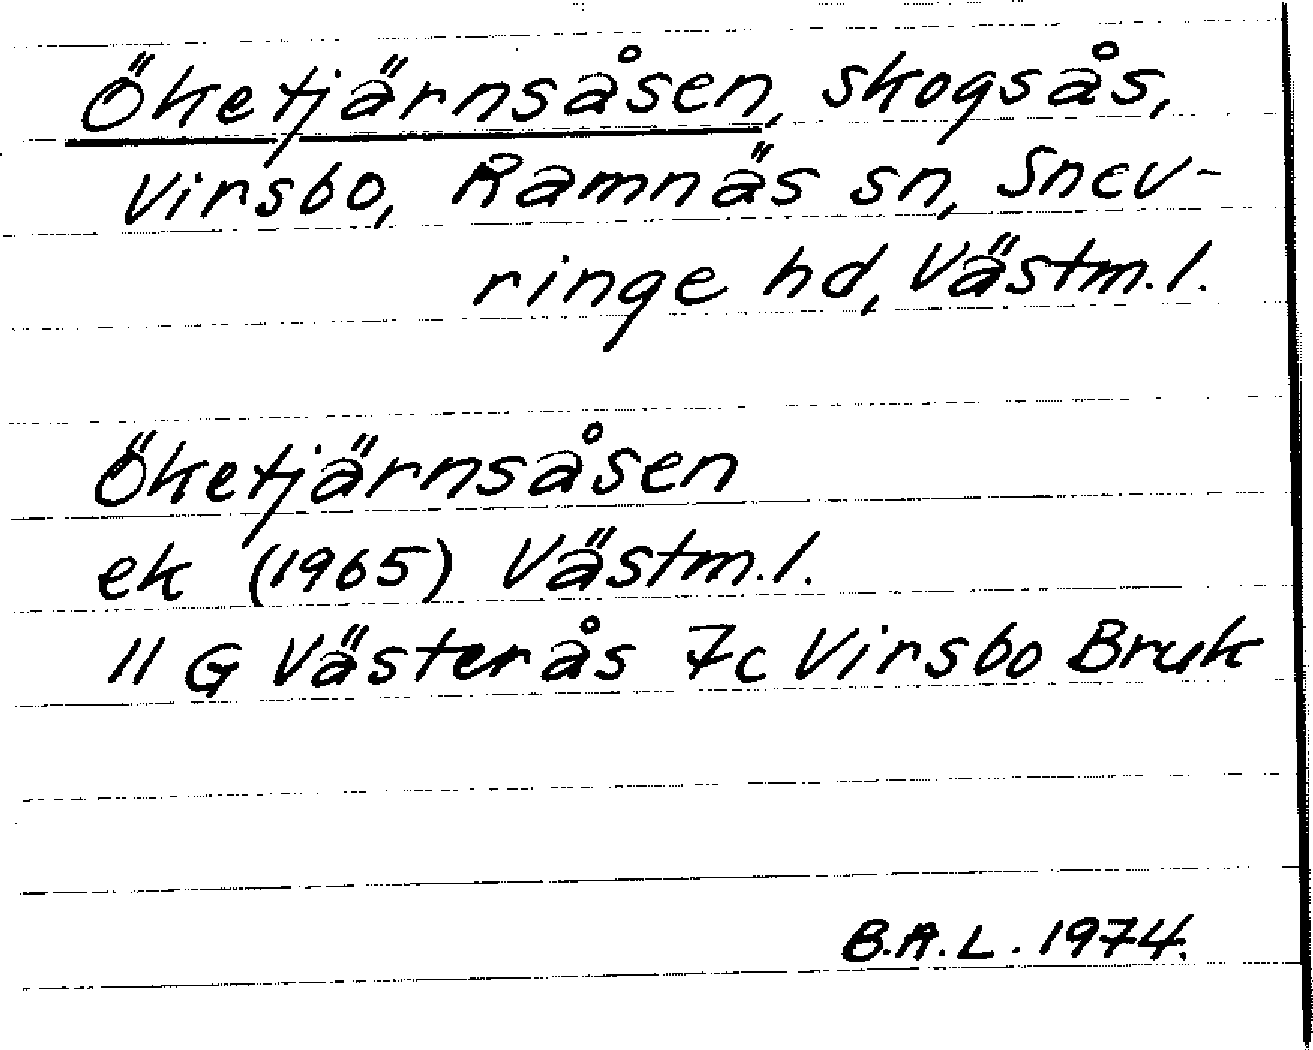 Öketjärnsåsen, skogsås,
Virsbo, Ramnäs sn, Snev-
ringe hd, Västm.l.
Öketjärnsåsen
ek (1965) Västm.l.
11 G Västerås 7c Virsbo Bruk
B.A.L. 1974.